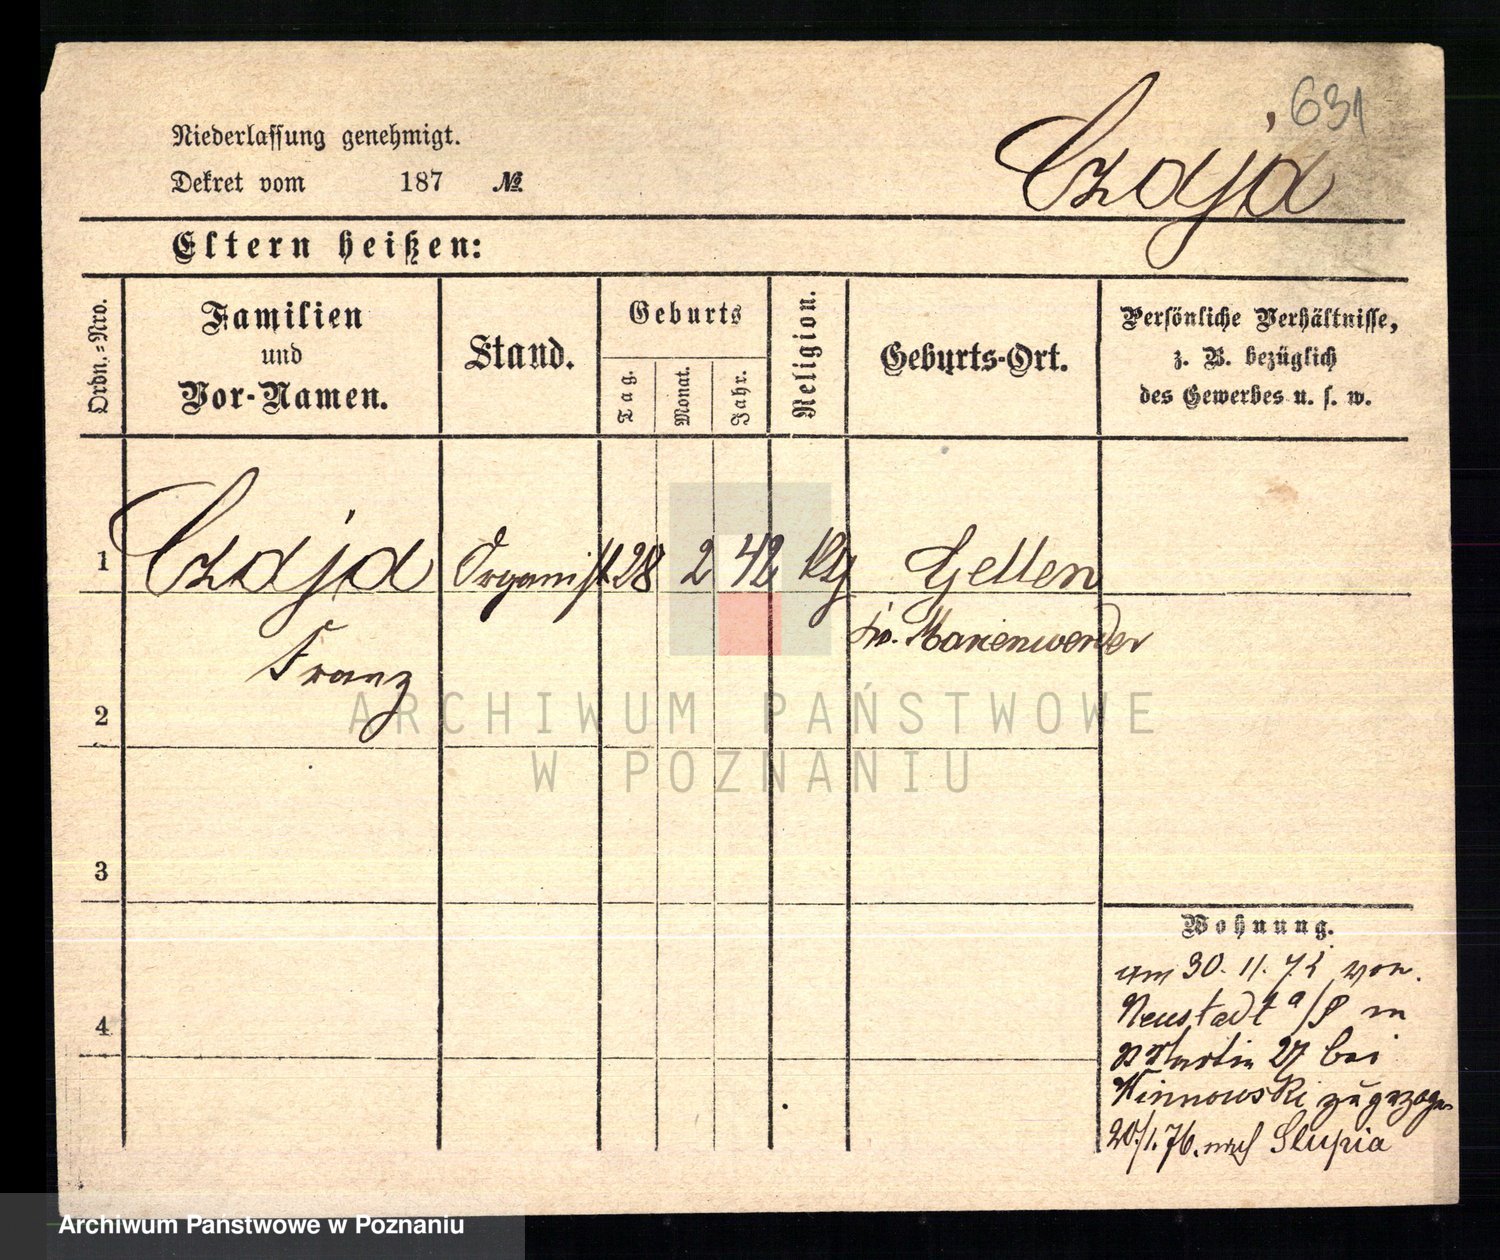 631
Niederlassung genehmigt.
Dekret vom 187 №
Czaja
Eltern heißen:
Ordn.-Nro.
Familien
und
Vor-Namen.
Stand.
Geburts
Tag.
Monat.
Jahr.
Religion.
Geburts-Ort.
Persönliche Verhältnisse,
z. B. bezüglich
des Gewerbes u. s. w.
1 Czaja Organist 28 2 42 Gellen
Franz
Marienwerder
2
ARCHIWUM PAŃSTWOWE
W POZNANIU
3
4
Wohnung.
am 30. 11. von
Neustadt a/ in
Martin 27 bei
zugezogen
20/1. 76. nach Slupia
Archiwum Państwowe w Poznaniu